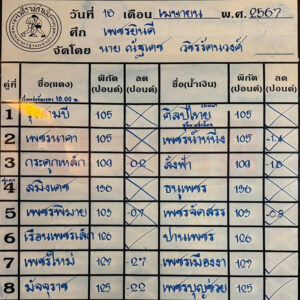 วันที่ 10 เดือน เมษายน พ.ศ. 2567
ศึก เพชรยินดี
จัดโดย นาย ณัฐเดช วชิรรัตนวงศ์
คู่ที่ ชื่อ(แดง) พิกัด (ปอนด์) ลด (ปอนด์) ชื่อ(น้ำเงิน) พิกัด (ปอนด์) ลด (ปอนด์)
1 105 ศิลป์ไทย 105
2 เพชรนาคา 105 เพชรน้ำหนึ่ง 105 -1.4
3 กระดูกเหล็ก 109 -0.2 ลั่งฟ้า 109 -1.8
4 สมิงเดช 136 ธนูเพชร 136
5 เพชรพิมาย 103 -0.7 เพชรจัดสรร 103 -0.9
6 เรือนเพชรเล็ก 126 ปานเพชร 126
7 เพชรใหม่ 127 -2.7 เพชรเมืองงา 127
8 มัจจุราช 125 -2.2 เพชรบุญช่วย 125